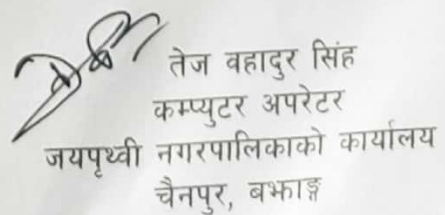 तेज वहादुर सिंह
कम्प्युटर अपरेटर
जयपृथ्वी नगरपालिकाको कार्यालय
चैनपुर, बझाङ्ग